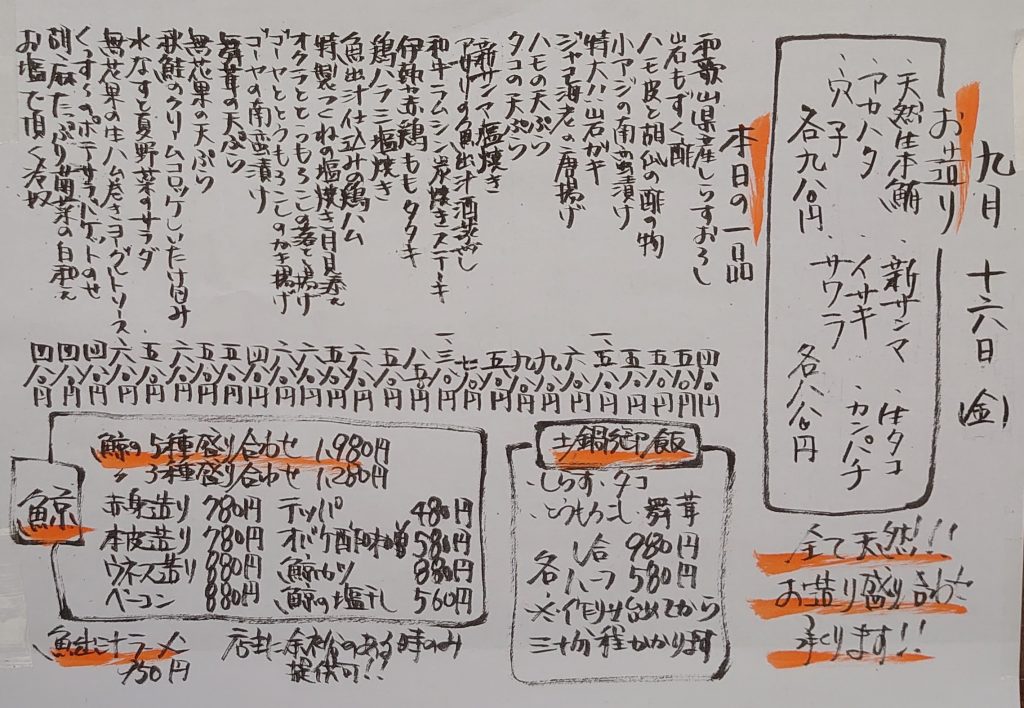 九月 十六日 (金)
お造り
・天然生本鮪 ・新サンマ ・生タコ
・アカハタ ・イサキ ・カンパチ
・穴子 ・サワラ
各九八〇円 各八八〇円
全て天然!!
お造り盛り合わせ
承ります!!
本日の一品
和歌山県産しらすおろし 四八〇円
岩もずく酢 五八〇円
ハモ皮と胡瓜の酢の物 五八〇円
小アジの南蛮漬け 五八〇円
特大八山石ガキ
ジャコ海老の唐揚げ 六八〇円
ハモの天ぷら 九八〇円
タコの天ぷら 九八〇円
新サンマ塩焼き
アサリの魚出汁酒蒸し 七八〇円
和牛ラムシン炭焼きステーキ
伊勢赤鶏ももタタキ
鶏ハラミ塩焼き 五八〇円
魚出汁仕込みの鶏ハム 六八〇円
特製つくねの塩焼き月見添え 五八〇円
オクラととうもろこしの落とし揚げ 六八〇円
ゴーヤととうもろこしのかき揚げ 六八〇円
ゴーヤの南蛮漬け 四八〇円
舞茸の天ぷら 五八〇円
無花果の天ぷら 五八〇円
秋鮭のクリームコロッケしいたけ包み 六八〇円
水なすと夏野菜のサラダ 五八〇円
無花果の生ハム巻きヨーグルトソース 六八〇円
くっすくのポテサラバケットのせ 四八〇円
胡麻たっぷり菊菜の白和え 四八〇円
お塩で頂く冷奴 四八〇円
土鍋御飯
・しらす・タコ
・とうもろこし・舞茸
各 一合 980円
ハーフ 580円
※作り出してから
三十分程かかります
鯨
鯨の5種盛り合わせ 1,980円
〃 3種盛り合わせ 1,280円
赤身造り 780円 テッパ 480円
本皮造り 780円 オバケ酢味噌 580円
ウネス造り 880円 鯨カツ 880円
ベーコン 880円 鯨の塩干し 560円
魚出汁ラーメン
750円
店主に余裕のある時のみ
提供可!!